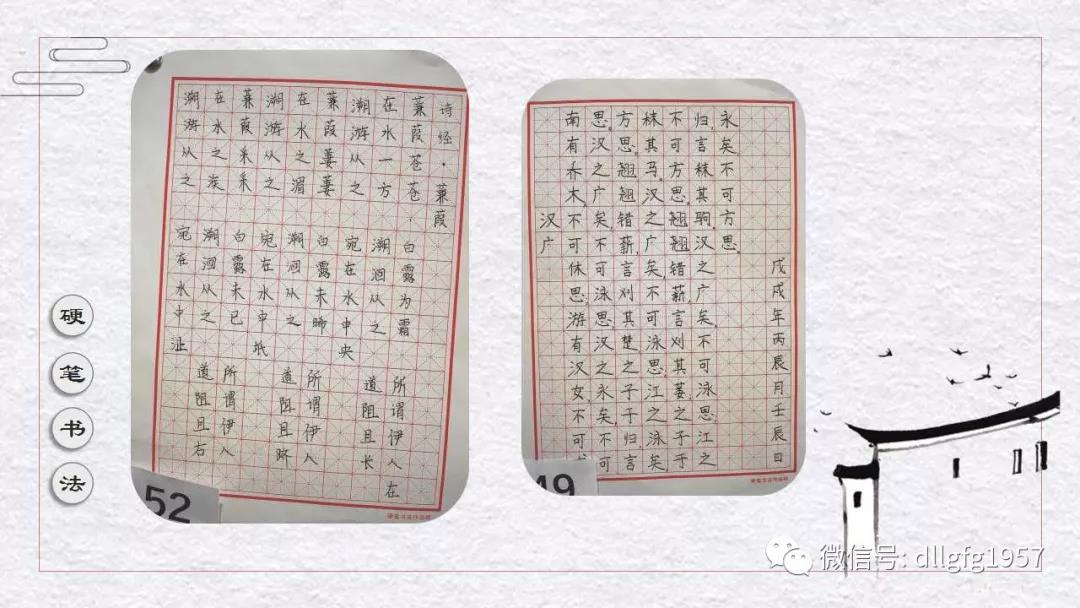 硬笔书法
诗经·蒹葭
蒹葭苍苍 白露为霜 所谓伊人 在
在水一方 溯洄从之 道阻且长
溯游从之 宛在水中央
蒹葭萋萋 白露未晞 所谓伊人
在水之湄 溯洄从之 道阻且跻
溯游从之 宛在水中坻
蒹葭采采 白露未已 所谓伊人
在水之涘 溯洄从之 道阻且右
溯游从之 宛在水中沚
52
汉广
南有乔木,不可休思,游有汉女,不可
思。汉之广矣,不可泳思。汉之永矣,不可
方思。翘翘错薪,言刈其楚之子于归,言
秣其马,汉之广矣不可泳思。江之泳矣
不可方思。翘翘错薪,言刈其蒌,之子于
归,言秣其驹,汉之广矣,不可泳思。江之
永矣不可方思。
戊戌年丙辰月壬辰日
49
微信号: dllgfg1957